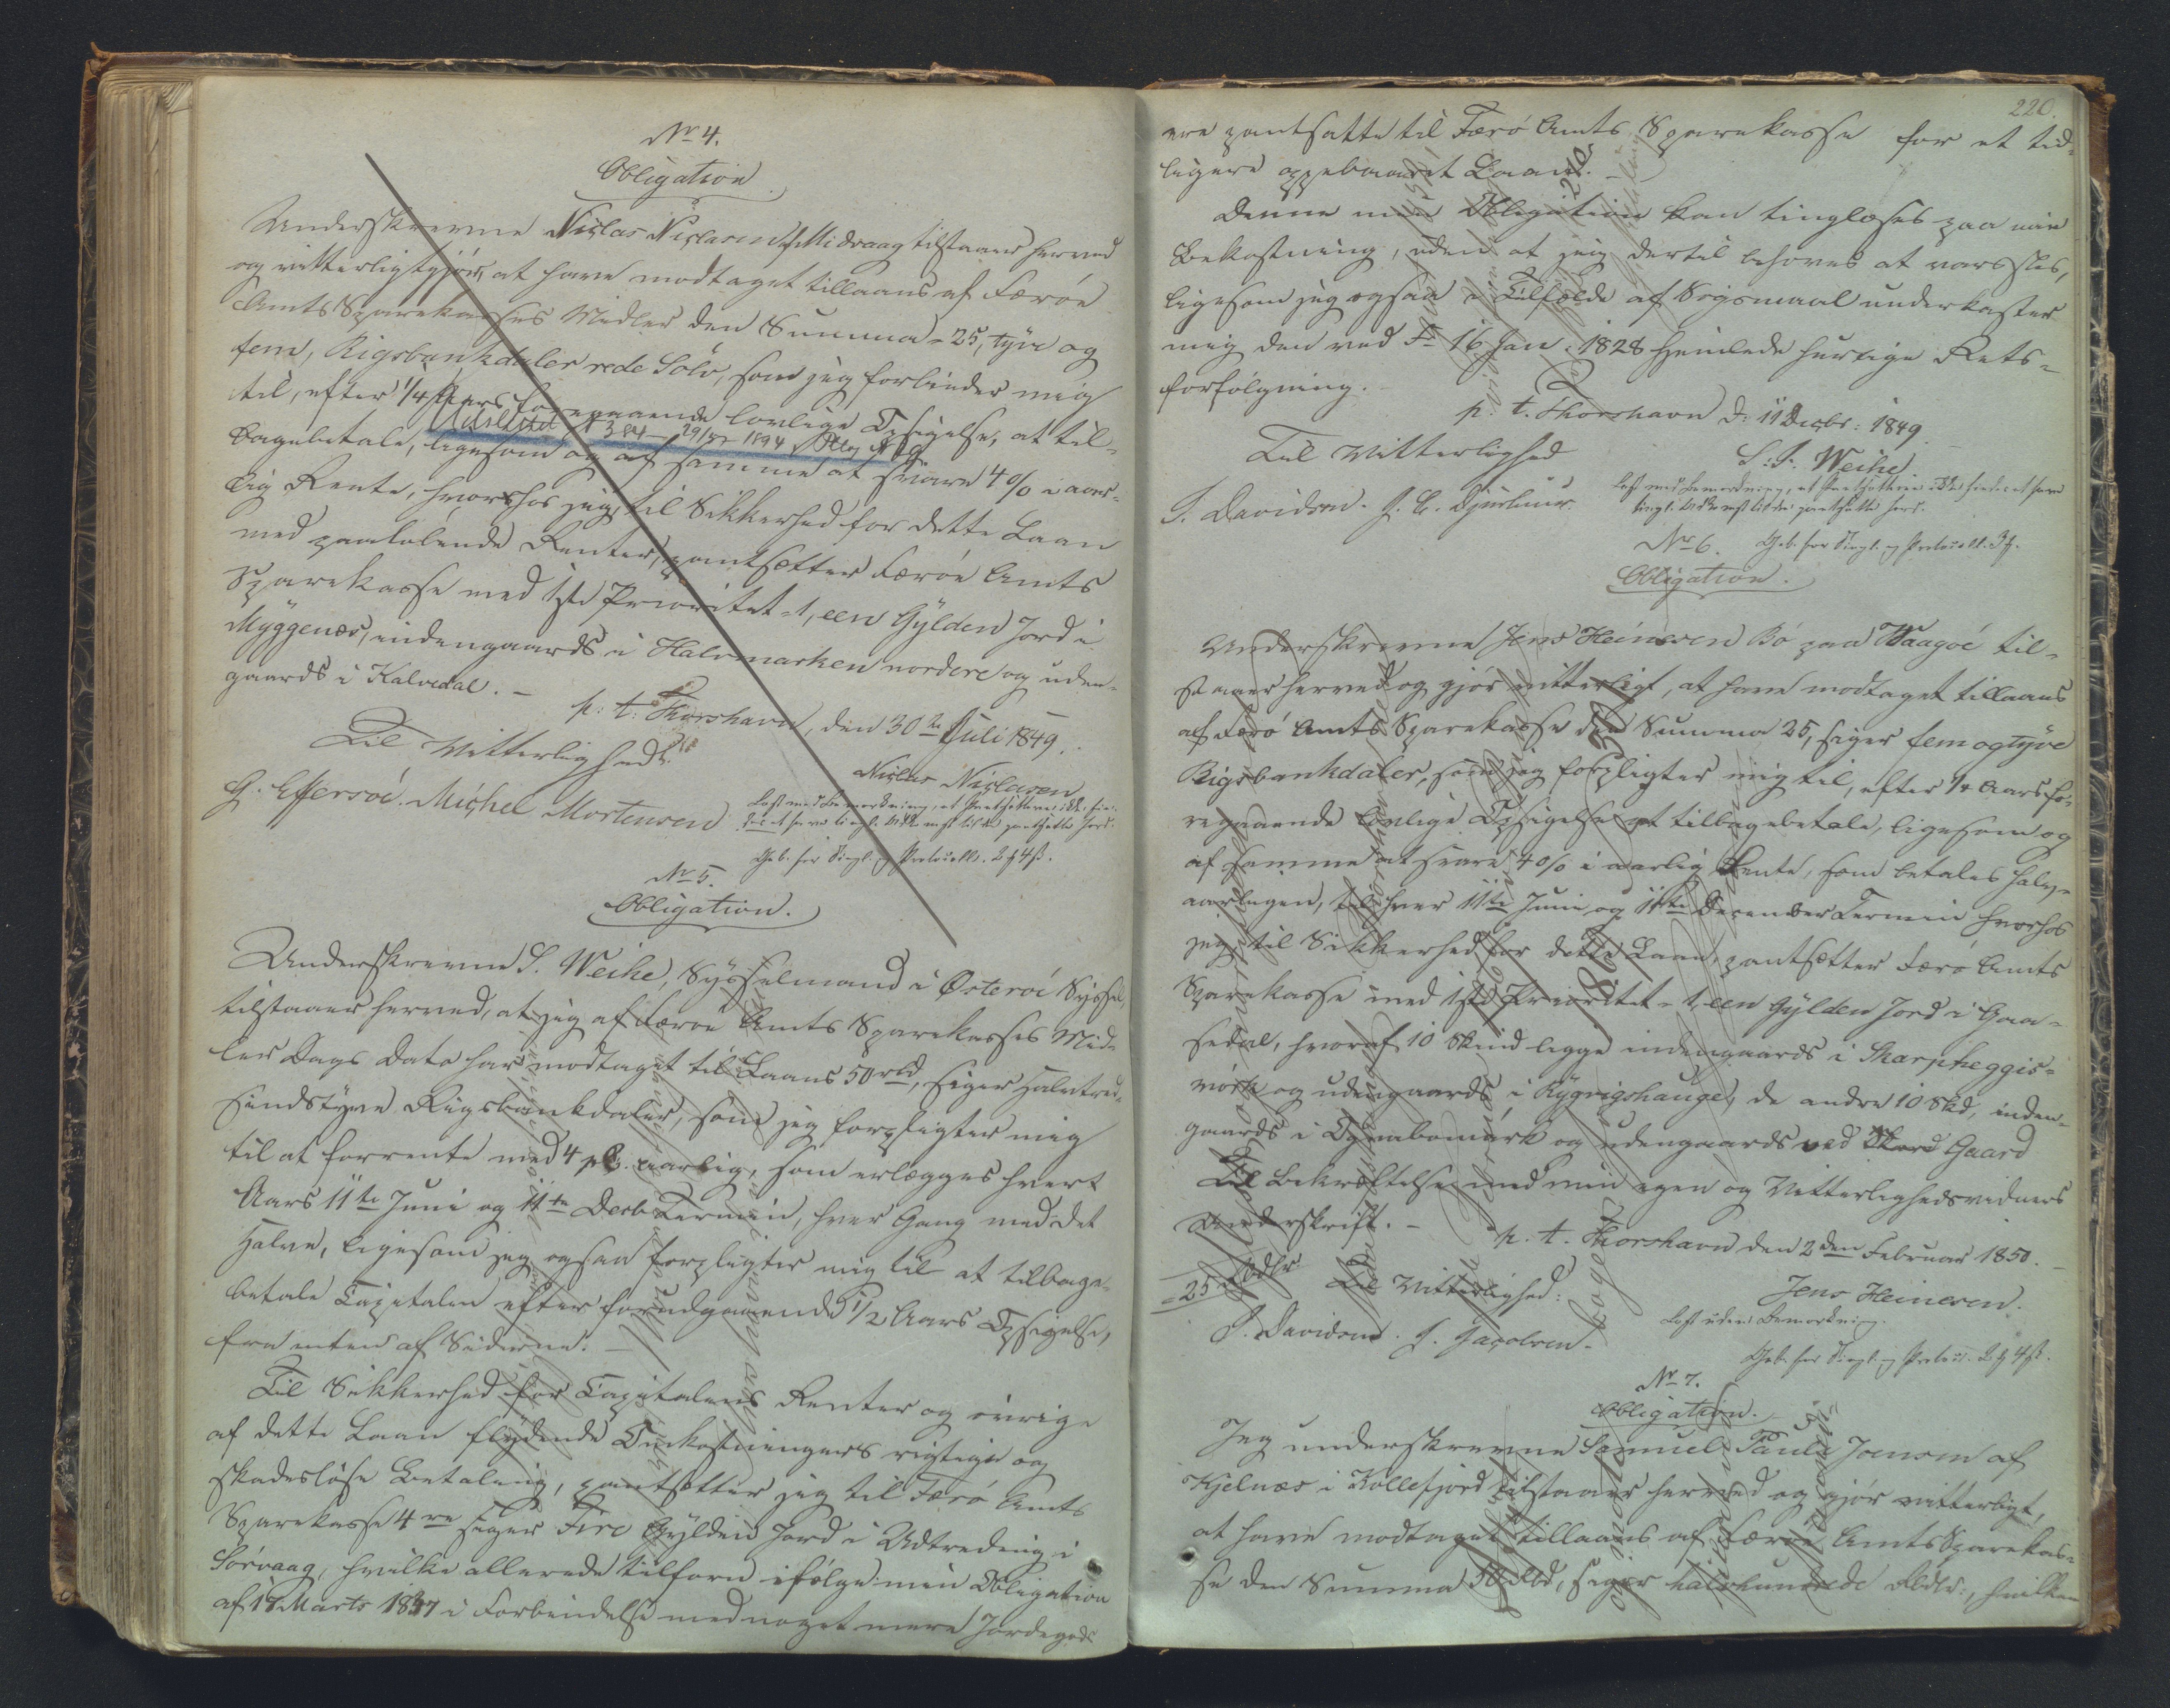 No 4.
Obligation
Underskrevne Niclas Niclasen af Midvaag tilstaaer herved
og vitterligtgjør, at have modtaget tillaans af Færøe
Amts Sparekasses Midler den Summa = 25, tyve og
fem, Rigsbankdaler rede Sølv, som jeg forbinder mig
til, efter 1/4 Aars foregaaende lovlige Opsigelse, at til-
Udslettet No 384 29/ 1894
bagebetale, ligesom og af samme at svare 4 % i aar-
lig Rente, hvorhos jeg, til Sikkerhed for dette Laan
med paaløbende Renter, pantsætter Færøe Amts
Sparekasse med 1ste Prioritet = 1, een Gylden Jord i
Myggenæs, indengaards i Halvmarken nordere og uden-
gaards i Kalvedal. —
p: t: Thorshavn, den 30te Juli 1849.
Til Vitterlighed:
Niclas Niclasen
G. Effersøe. Michel Mortensen
Læst med Bemærkning, at Pantsætteren ikke fin-
des at have tingl. Adkomst til den pantsatte Jord.
Geb. for Tingl. og Protocoll. 2 4 ß.
No 5.
Obligation.
Underskrevne S. Weihe, Sysselmand i Østerøe Syssel,
tilstaaer herved, at jeg af Færøe Amts Sparekasses Mid-
ler Dags Dato har modtaget til Laans 50 rbd, siger Halvtred-
sindstyve Rigsbankdaler, som jeg forpligter mig
til at forrente med 4 pC. aarlig, som erlægges hvert
Aars 11te Juni og 11te Decb Termin, hver Gang med det
Halve, ligesom jeg ogsaa forpligter mig til at tilbage-
betale Capitalen efter forudgaaende 1/2 Aars Opsigelse,
fra enten af Siderne. —
Til Sikkerhed for Capitalens Renter og øvrige
af dette Laan flydende Omkostningers rigtige og
skadesløse Betaling, pantsætter jeg til Færø Amts
Sparekasse 4re siger Fire Gylden Jord i Udtreding i
Sørvaag, hvilke allerede tilforn ifølge min Obligation
af 17 Marts 1847 i Forbindelse med noget mere Jordegods
220.
ere pantsatte til Færø Amts Sparekasse for et tid-
ligere oppebaaret Laan. —
Denne min Obligation kan tinglæses paa min
Bekostning, uden at jeg dertil behøves at varsles,
ligesom jeg ogsaa i Tilfælde af Søgsmaal underkaster
mig den ved Fr 16 Jan. 1828 hjemlede hurtige Rets-
forfølgning. —
p. t. Thorshavn d: 11 Decbr: 1849.
Til Vitterlighed
S: P. Weihe.
J. Davidsen. J. C. Djurhuus.
Læst med Bemærkning, at Pantsætteren ikke findes at have
tingl. Adkomst til den pantsatte Jord.
No 6. Geb. for Tingl. og Protocoll.
Obligation.
Underskrevne Jens Heinesen Bø paa Waagøe til-
staaer herved og gjør vitterligt, at have modtaget tillaans
af Færø Amts Sparekasse den Summa 25, siger fem og tyve
Rigsbankdaler, som jeg forpligter mig til, efter 1/4 Aars fo-
regaaende lovlige Opsigelse at tilbagebetale, ligesom og
af samme at svare 4 % i aarlig Rente, som betales halv-
aarligen, hver 11te Juni og 11te December Termin hvorhos
jeg, til Sikkerhed for dette Laan, pantsætter Færø Amts
Sparekasse med 1ste Prioritet = 1, een Gylden Jord i Gaa-
sedal, hvoraf 10 Skind ligge indengaards i Skarpheggis-
mörk og udengaards i Rygvigshauge, de andre 10 Skd, inden-
gaards i Ognabomörk og udengaards ved Gaard
Til Bekræftelse med min egen og Vitterlighedsvidners
Underskrift. —
p. t. Thorshavn den 2den Februar 1850. —
= 25 Rbdlr
Til Vitterlighed:
Jens Heinesen.
J. Davidsen. J. Jacobsen.
Læst uden Bemærkning.
Geb. for Tingl. og Protoc. 2 4 ß.
No 7.
Obligation.
Jeg underskrevne Samuel Paula Joensen af
Kjelnæs i Kollefjord tilstaaer herved og gjør vitterligt,
at have modtaget tillaans af Færøe Amts Sparekas-
se den Summa 50 Rbd, siger halvhundrede Rbdlr:, hvilken